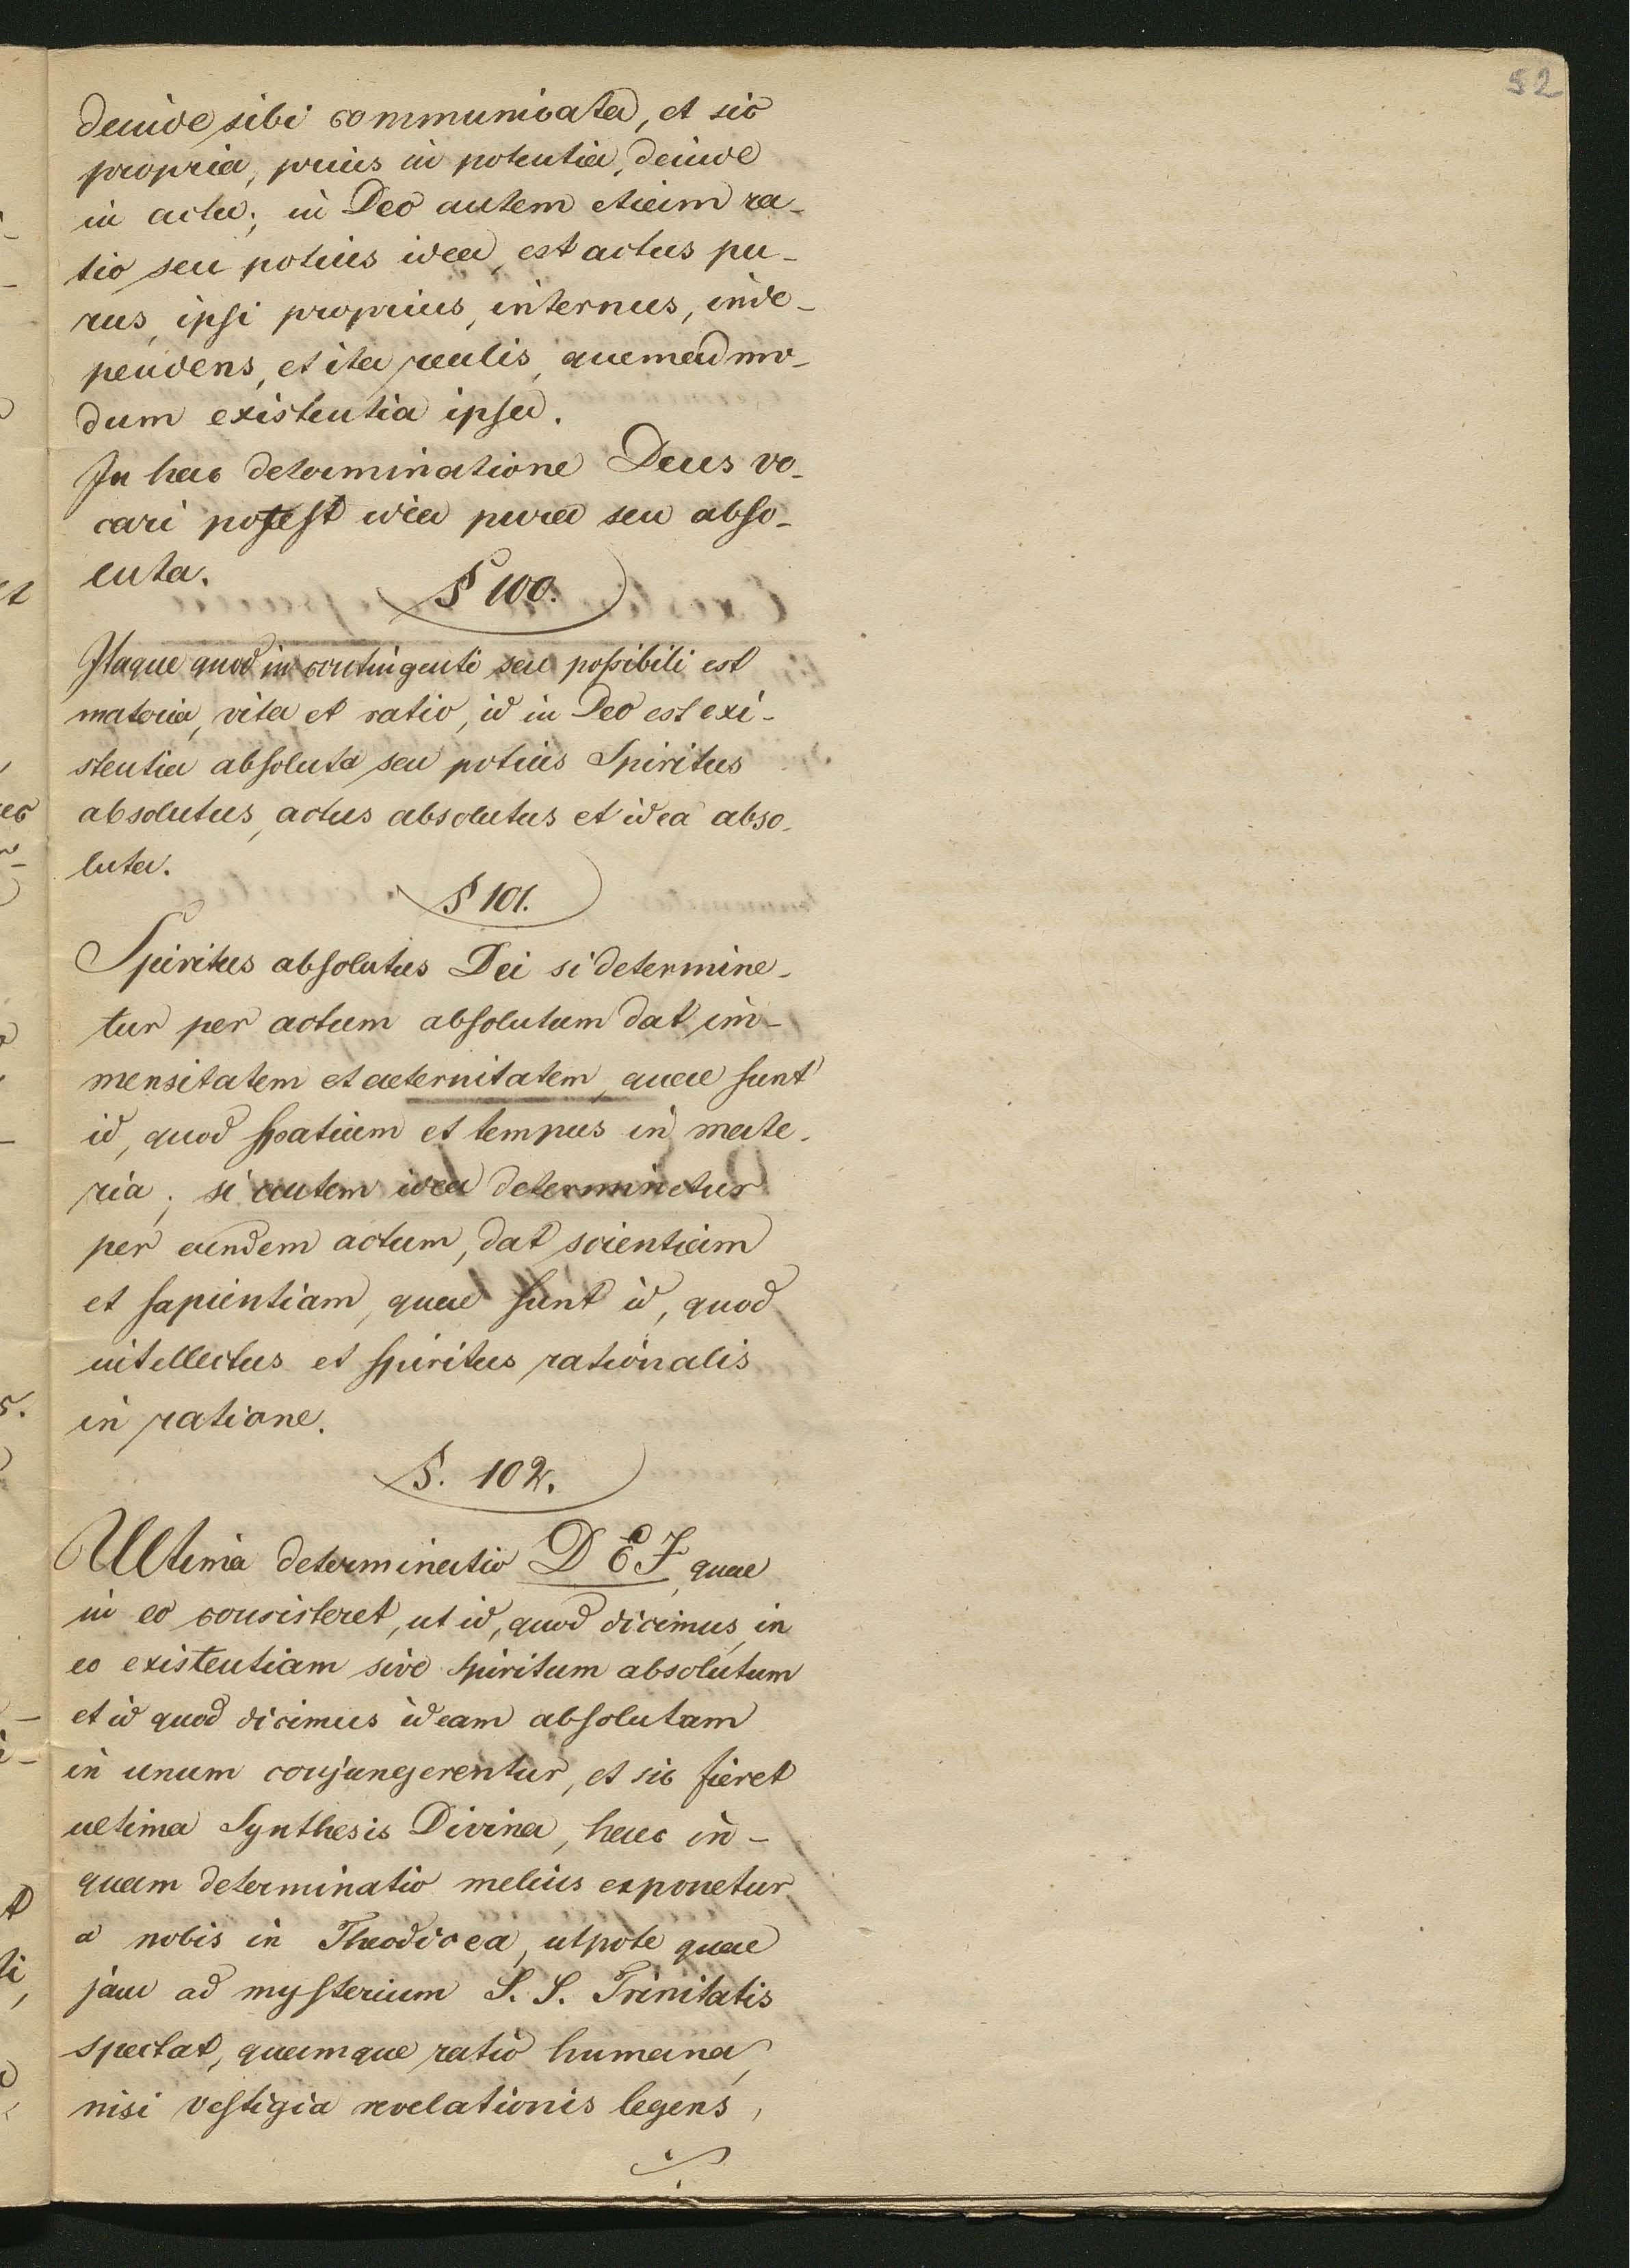 52
deinde sibi communicata, et sic
propria, prius in potentia, deinde
in actu; in Deo autem etiam ra-
tio seu potius idea, est actus pu-
rus, ipsi proprius, internus, inde-
pendens, et ita realis, quemadmo-
dum existentia ipsa.
In hac determinatione Deus vo-
cari potest idea pura seu abso-
luta.
§ 100.
Itaque quod in contingenti seu possibili est
materia, vita et ratio, id in Deo est exi-
stentia absoluta seu potius Spiritus
absolutus, actus absolutus et idea abso-
luta.
§ 101.
Spiritus absolutus Dei si determine-
tur per actum absolutum dat im-
mensitatem et aeternitatem, quae sunt
id, quod spatium et tempus in mate-
ria; si autem idea determinetur
per eundem actum, dat scientiam
et sapientiam, quae sunt id, quod
intellectus et spiritus rationalis
in ratione.
§. 102.
Ultima determinatio DEI, quae
in eo consisteret, ut id, quod dicimus, in
eo existentiam sive spiritum absolutum
et id quod dicimus ideam absolutam
in unum conjungerentur, et sic fieret
ultima Synthesis Divina, haec in-
quam determinatio melius exponetur
a nobis in Theodicea, utpote quae
jam ad mysterium S. S. Trinitatis
spectat, quamque ratio humana,
nisi vestigia revelationis legens,